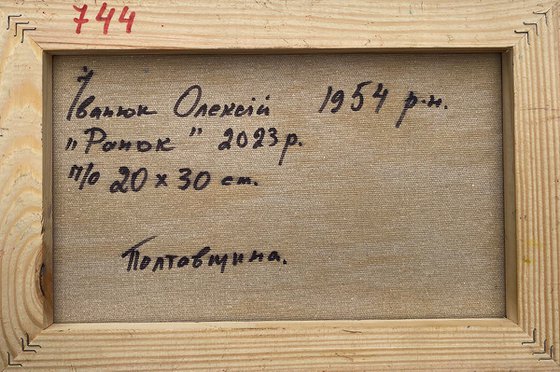 744
Іванюк Олексій 1954 р.н.
„Ранок" 2023 р.
п/о 20 х 30 см.
Полтавщина.